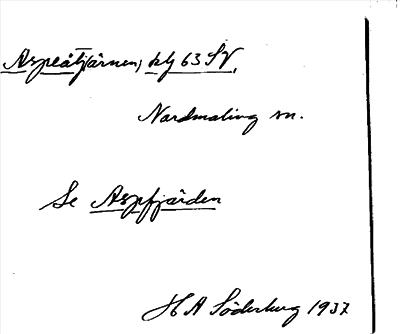 Aspeåtjärnen, klj 63 SV.
Nordmaling sn.
Se Aspfjärden
H A Söderberg 1937